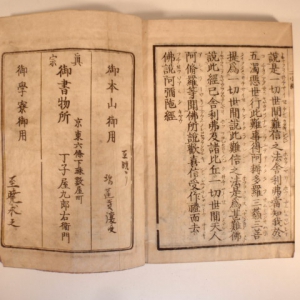 說是一切世間難信之法舍利弗當知我於
五濁惡世行此難事得阿耨多羅三藐三菩
提爲一切世間說此難信之法是爲甚難佛
說此經已舍利弗及諸比丘一切世間天人
阿脩羅等聞佛所說歡喜信受作禮而去
佛說阿彌陀經
御本山御用
眞宗
御書物所
京東六條下珠數屋町
丁子屋九郎右衛門
御學寮御用